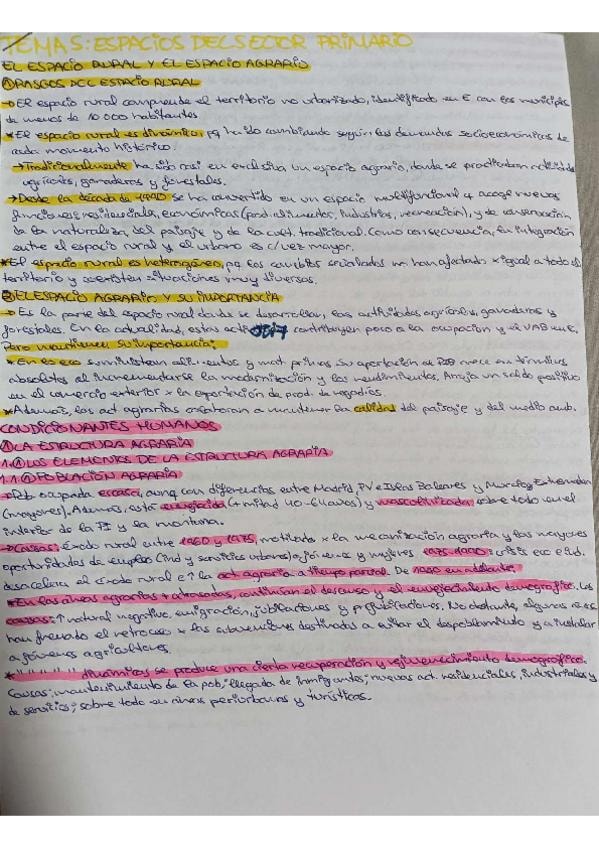 TEMA 5: ESPACIOS DEL SECTOR PRIMARIO
EL ESPACIO RURAL Y EL ESPACIO AGRARIO
Ⓐ RASGOS DEL ESPACIO RURAL
→ El espacio rural comprende el territorio no urbanizado, identificado en E con los municipios
de menos de 10 000 habitantes.
* El espacio rural es dinámico, pq ha ido cambiando según las demandas socioeconómicas de
cada momento histórico.
→ Tradicionalmente ha sido casi en exclusiva un espacio agrario, donde se practicaban actividades
agrícolas, ganaderas y forestales.
→ Desde la década de 1990 se ha convertido en un espacio multifuncional q acoge nuevas
funciones: residenciales, económicas (prod. alimentos, industrias, recreación), y de conservación
de la naturaleza, del paisaje y de la cult. tradicional. Como consecuencia, la integración
entre el espacio rural y el urbano es c/vez mayor.
* El espacio rural es heterogéneo, pq los cambios señalados no han afectado x igual a todo el
territorio y coexisten situaciones muy diversas.
Ⓑ EL ESPACIO AGRARIO Y SU IMPORTANCIA
→ Es la parte del espacio rural donde se desarrollan las actividades agrícolas, ganaderas y
forestales. En la actualidad, estas act contribuyen poco a la ocupación y al VAB en E.
Pero mantienen su importancia:
* En lo eco suministran alimentos y mat. primas. Su aportación al PIB crece en términos
absolutos al incrementarse la modernización y los rendimientos. Arroja un saldo positivo
en el comercio exterior x la exportación de prod. de regadíos.
* Además, las act. agrarias colaboran a mantener la calidad del paisaje y del medio amb.
CONDICIONANTES HUMANOS
① LA ESTRUCTURA AGRARIA
1.Ⓐ LOS ELEMENTOS DE LA ESTRUCTURA AGRARIA
1.1.Ⓐ POBLACIÓN AGRARIA
→ Pob. ocupada escasa, aunq con diferencias entre Madrid, PV e Islas Baleares y Murcia y Extremadura
(mayores). Además, está envejecida (+ mitad 40-64 años) y masculinizada, sobre todo en el
interior de la PI y la montaña.
→ Causas: Éxodo rural entre 1960 y 1975, motivado x la mecanización agraria y las mayores
oportunidades de empleo (ind y servicios urbanos) a jóvenes y mujeres. 1975-1990: crisis eco e ind.
desacelera el éxodo rural e ↑ la act. agraria a tiempo parcial. De 1990 en adelante,
* En las áreas agrarias + atrasadas, continúan el descenso y el envejecimiento demográfico. Las
causas: ↑ natural negativo, emigración, jubilaciones y prejubilaciones. No obstante, algunas áreas
han frenado el retroceso x las subvenciones destinadas a evitar el despoblamiento y a instalar
a jóvenes agricultores.
* " " " " " dinámicas se produce una cierta recuperación y rejuvenecimiento demográfico.
Causas: mantenimiento de la pob; llegada de inmigrantes; nuevas act. residenciales, industriales y
de servicios; sobre todo en áreas periurbanas y turísticas.